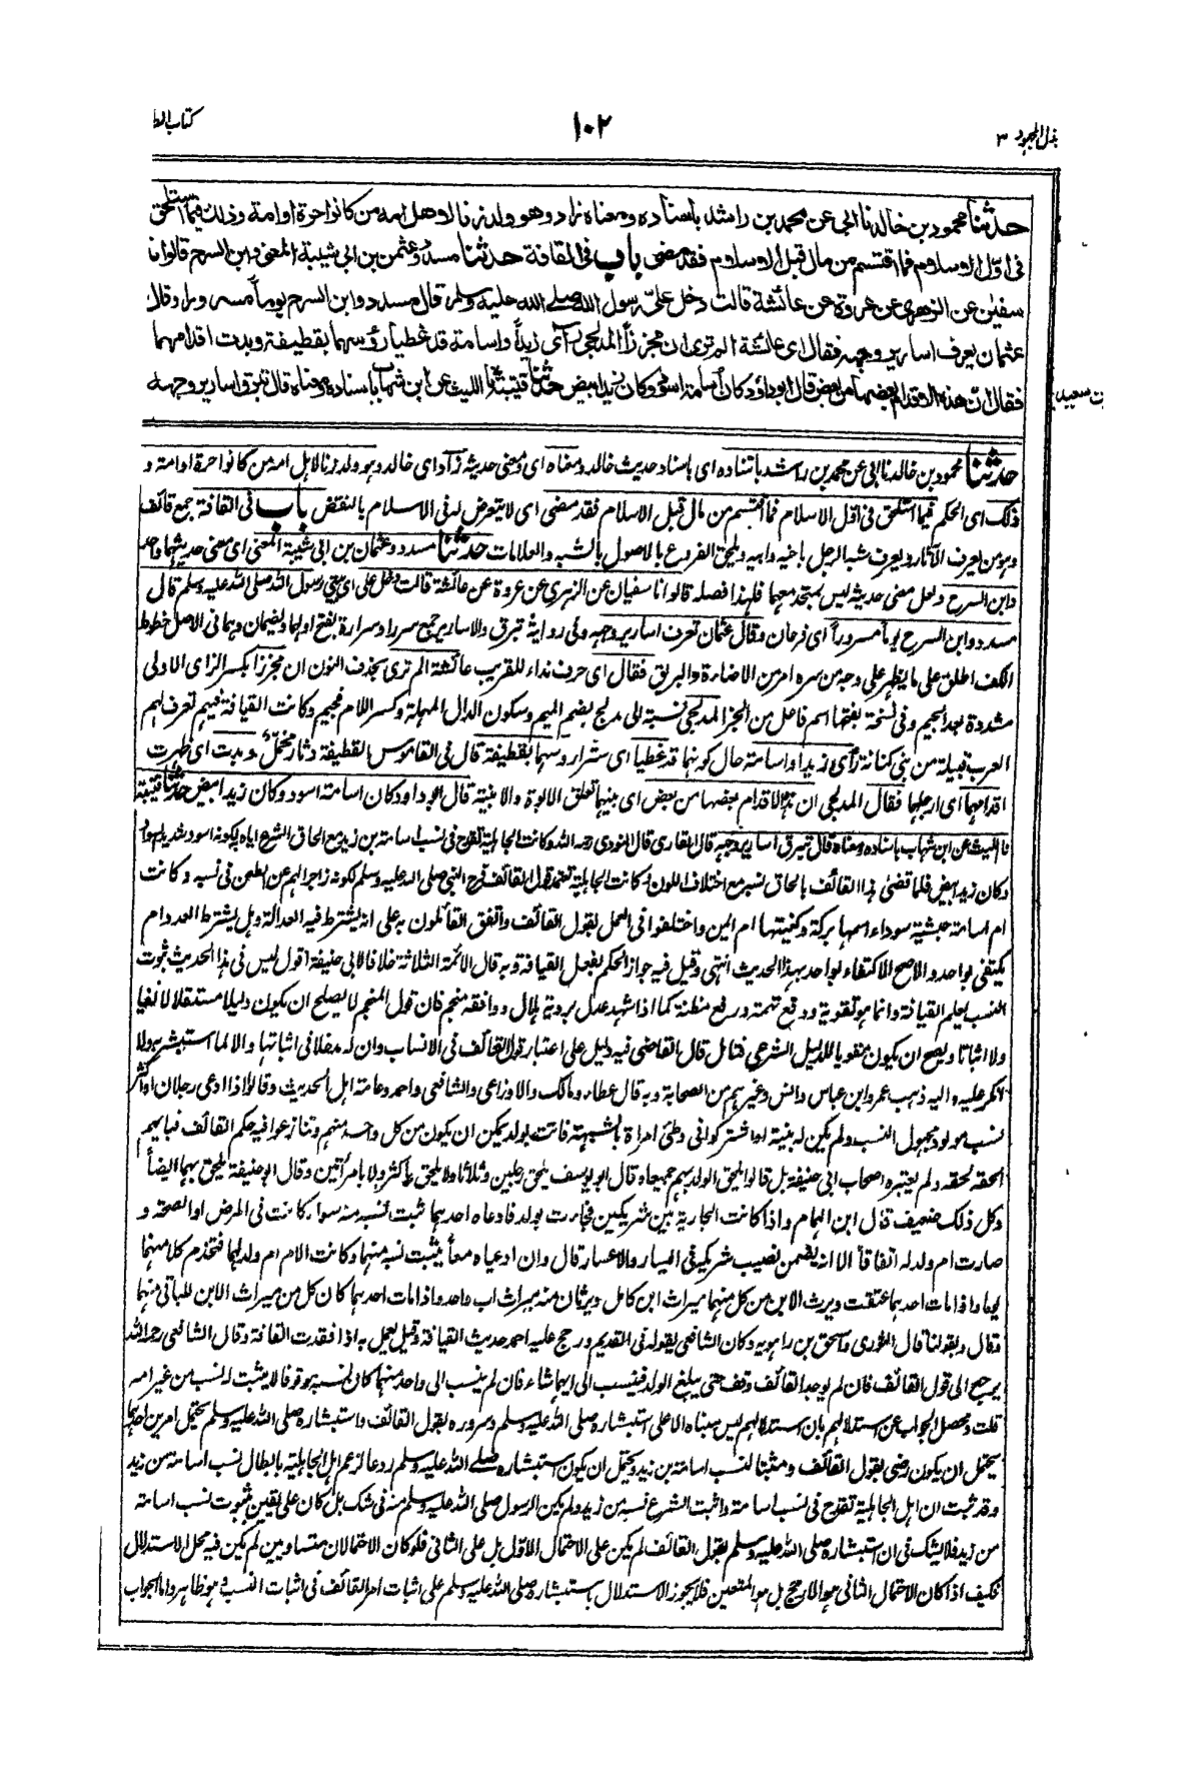 بذل المجهود ٣
١٠٢
كتاب الط
حدثنا محمود بن خالد نا ابى عن محمد بن راشد باسناده ومعناه زاد وهو ولد زنا لاهل امه من كانوا حرة او امة وذلك فيما استلحق
فى اول الاسلام فما اقتسم من مال قبل الاسلام فقد مضى باب فى القافة حدثنا مسدد وعثمن بن ابى شيبة المعنى وابن السرح قالوا نا
سفين عن الزهرى عن عروة عن عائشة قالت دخل على رسول الله صلى الله عليه وسلم قال مسدد وابن السرح يوماً مسرورا وقال
عثمان يعرف اسارير وجهه فقال اى عائشة الم ترى ان مجززاً المدلجى رأى زيداً واسامة قد غطيا رؤسهما بقطيفة وبدت اقدامهما
فقال ان هذه الاقدام بعضها من بعض قال ابو داؤد كان اسامة اسود وكان زيد ابيض حدثنا قتيبة نا الليث عن ابن شهاب باسناده ومعناه قال تبرق اسارير وجهه
بن سعيد
حدثنا محمود بن خالد نا ابى عن محمد بن راشد باسناده اى باسناد حديث خالد ومعناه اى ومعنى حديثه زاد اى خالد وهو ولد زنا لاهل امه من كانوا حرة او امة و
ذلك اى الحكم فيما استلحق فى اول الاسلام فما اقتسم من مال قبل الاسلام فقد مضى اى لا يتعرض له فى الاسلام بالنقض باب فى القافة جمع قائف
وهو من يعرف الآثار ويعرف شبه الرجل باخيه وابيه ويلحق الفروع بالاصول بالشبه والعلامات حدثنا مسدد وعثمان بن ابى شيبة المعنى اى معنى حديثهما واحد
وابن السرح ولعل معنى حديثه ليس بمتحد معهما فلهذا فصله قالوا نا سفيان عن الزهرى عن عروة عن عائشة قالت دخل على اى بيتى رسول الله صلى الله عليه وسلم قال
مسدد وابن السرح يوماً مسروراً اى فرحان وقال عثمان تعرف اسارير وجهه وفى رواية تبرق والاسارير جمع سرر او سرارة بفتح اولهما ويضمان وهما فى الاصل خطوط
الكف اطلق على ما يظهر على وجه من سره امر من الاضارة والبريق فقال اى حرف نداء للقريب عائشة الم ترى بحذف النون ان مجززا بكسر الزاى الاولى
مشددة بعد الجيم وفى نسخة بفتحها اسم فاعل من الجز المدلجى نسبة الى مدلج بضم الميم وسكون الدال المهملة وكسر اللام فجيم وكانت القيافة فيهم تعرف لهم
العرب قبيلة من بنى كنانة رأى زيدا واسامة حال كونهما قد غطيا اى سترا رءوسهما بقطيفة قال فى القاموس القطيفة دثار مخمل وبدت اى ظهرت
اقدامهما اى ارجلهما فقال المدلجى ان هذه الاقدام بعضها من بعض اى بينهما تعلق الابوة والابنية قال ابو داود كان اسامة اسود وكان زيد ابيض حدثنا قتيبة
نا الليث عن ابن شهاب باسناده ومعناه قال تبرق اسارير وجهه قال القارى قال النووى رحمه الله وكانت الجاهلية تقدح فى نسب اسامة بن زيد مع الحاق الشرع اياه لكونه اسود شديد السواد
وكان زيد ابيض فلما قضى هذا القائف بالحاق نسبه مع اختلاف اللون وكانت الجاهلية تعتمد قول القائف فرح النبى صلى الله عليه وسلم لكونه زاجرا لهم عن الطعن فى نسبه وكانت
ام اسامة حبشية سوداء اسمها بركة وكنيتها ام ايمن واختلفوا فى العمل بقول القائف واتفق القائلون به على انه يشترط فيه العدالة وهل يشترط العدد ام
يكتفى بواحد والاصح الاكتفاء بواحد بهذا الحديث انتهى وقيل فيه جواز الحكم بفعل القيافة وبه قال الائمة الثلاثة خلافا لابى حنيفة اقول ليس فى هذا الحديث ثبوت
النسب بعلم القيافة وانما هو تقوية ودفع تهمة ورفع مظنة كما اذا شهد عدل برؤية هلال ووافقه منجم فان قول المنجم لا يصلح ان يكون دليلا مستقلا لا نفيا
ولا اثباتا ويصح ان يكون مقويا للدليل الشرعى فتامل قال القاضى فيه دليل على اعتبار قول القائف فى الانساب وان له مدخلا فى اثباتها والا لما استبشر به ولا
انكر عليه واليه ذهب عمر وابن عباس وانس وغيرهم من الصحابة وبه قال عطاء ومالك والاوزاعى والشافعى واحمد وعامة اهل الحديث وقالوا اذا ادعى رجلان او اكثر
نسب مولود مجهول النسب ولم يكن له بينة او اشتركوا فى وطئ امرأة بالشبهة فاتت بولد يمكن ان يكون من كل واحد منهم وتنازعوا فيه حكم القائف فبايهم
الحقه لحقه ولم يعتبره اصحاب ابى حنيفة بل قالوا يلحق الولد بهم جميعا وقال ابو يوسف يلحق برجلين وثلاثة ولا يلحق باكثر ولا بامرأتين وقال ابو حنيفة يلحق بهما ايضاً
وكل ذلك ضعيف قال ابن الهمام واذا كانت الجارية بين شريكين فجاءت بولد فادعاه احدهما ثبت نسبه منه سواء كانت فى المرض او الصحة و
صارت ام ولد له اتفاقاً الا انه يضمن نصيب شريكه فى اليسار والاعسار قال وان ادعياه معاً يثبت نسبه منهما وكانت الام ام ولد لهما فتخدم كلا منهما
يوما واذا مات احدهما عتقت ويرث الابن من كل منهما ميراث ابن كامل ويرثان منه ميراث اب واحد واذا مات احدهما كان كل من ميراث الابن للباقى منهما
وقال وبقولنا قال الثورى واسحق بن راهويه وكان الشافعى يقوله فى القديم ورجح عليه احمد حديث القيافة وقيل يعمل به اذا فقدت القافة وقال الشافعى رحمه الله
يرجع الى قول القائف فان لم يوجد القائف وقف حتى يبلغ الولد فينسب الى ايهما شاء فان لم ينسب الى واحد منهما كان نسبه موقوفا لا يثبت له نسب من غير امه
قلت ومحصل الجواب عن استدلالهم بان استدلالهم ليس مبناه الا على استبشاره صلى الله عليه وسلم وسروره بقول القائف واستبشاره صلى الله عليه وسلم يحتمل امرين احدهما
يحتمل ان يكون رضى بقول القائف ومثبتا لنسب اسامة بن زيد ويحتمل ان يكون استبشاره صلى الله عليه وسلم ردعا لزعم اهل الجاهلية بابطال نسب اسامة من زيد
وقد ثبت ان اهل الجاهلية تقدح فى نسب اسامة واثبت الشرع نسبه من زيد ولم يكن الرسول صلى الله عليه وسلم منه فى شك بل كان على يقين بثبوت نسب اسامة
من زيد فلا يشك فى ان استبشاره صلى الله عليه وسلم بقول القائف لم يكن على الاحتمال الاول بل على الثانى فلو كان الاحتمالان متساويين لم يكن فيه محل الاستدلال
فكيف اذا كان الاحتمال الثانى هو الارجح بل هو المتعين فلا يجوز الاستدلال باستبشاره صلى الله عليه وسلم على اثبات امر القائف فى اثبات النسب وهو ظاهر واما الجواب